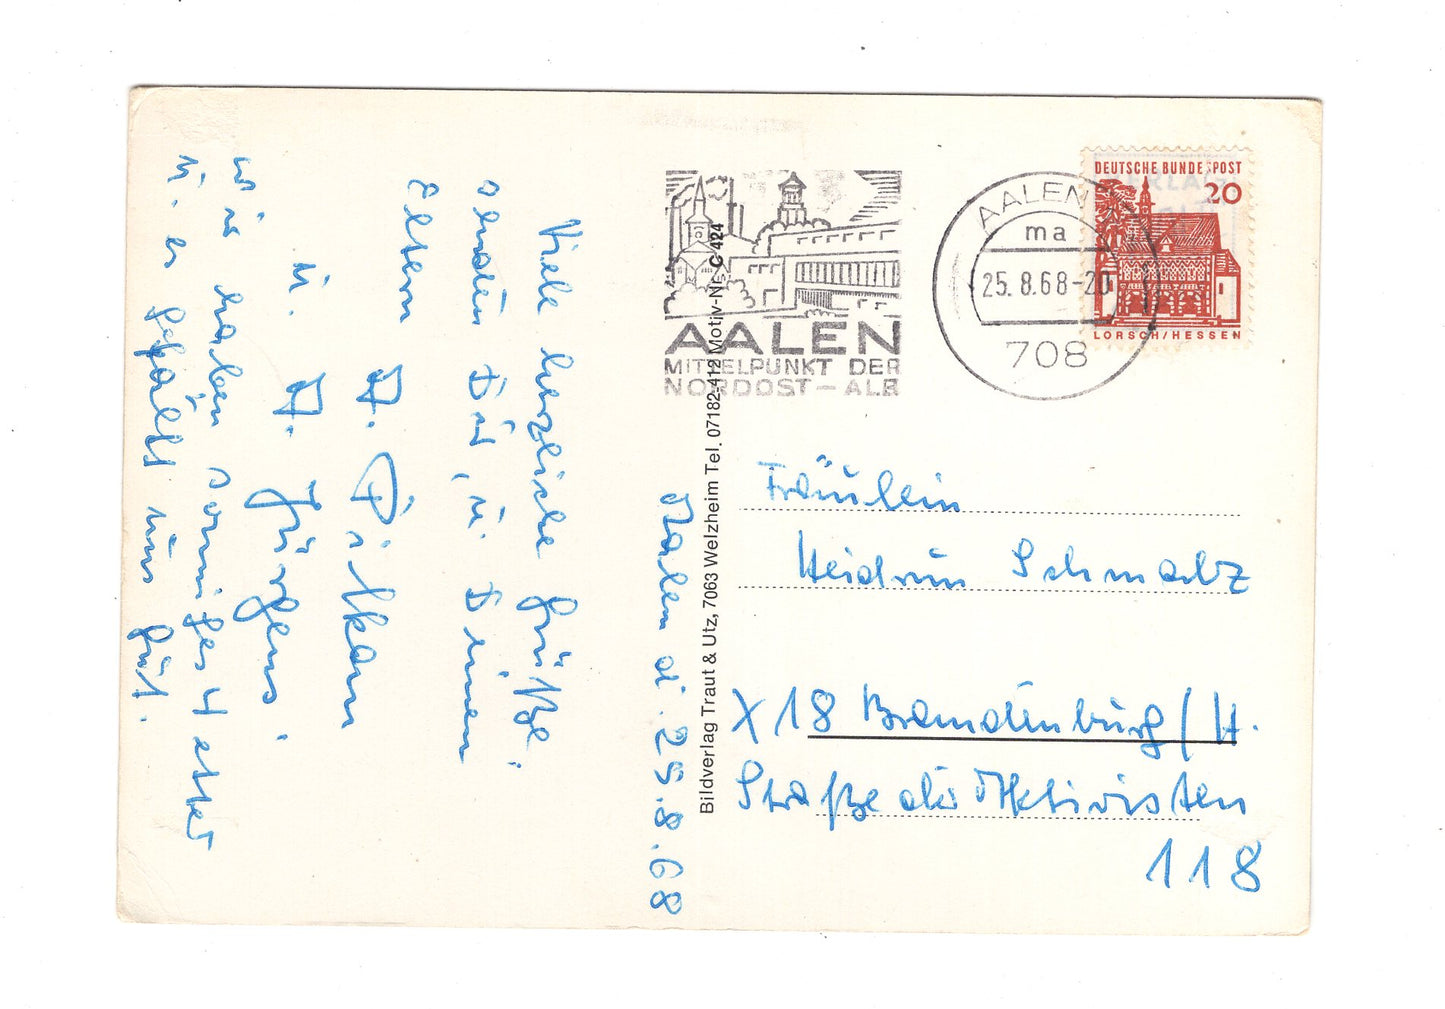 Aalen d. 25.8.68
Viele herzliche Grüße
senden Dir, u. Deinen
Eltern
u. J. Jürgens.
wir haben sonniges Wetter
u. es gefällt uns gut.
Bildverlag Traut & Utz, 7063 Welzheim Tel. 07182-412 Motiv-Nr. C 424
AALEN
MITTELPUNKT DER
NORDOST-ALB
AALEN
ma
25.8.68-20
708
DEUTSCHE BUNDESPOST
20
LORSCH/HESSEN
Fräulein
Heidrun Schmalz
X 18 Brandenburg/H.
Straße der Aktivisten
118